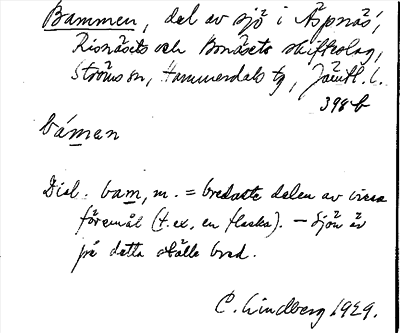 Bammen, del av sjö i Äspnäs,
Risnäsets och Bonäsets skifteslag,
Ströms sn, Hammerdals tg, Jämtl. l.
398 b
bámen
Dial. bam, m. = bredaste delen av vissa
föremål (t. ex. en flaska). – Sjön är
på detta ställe bred.
C. Lindberg 1929.